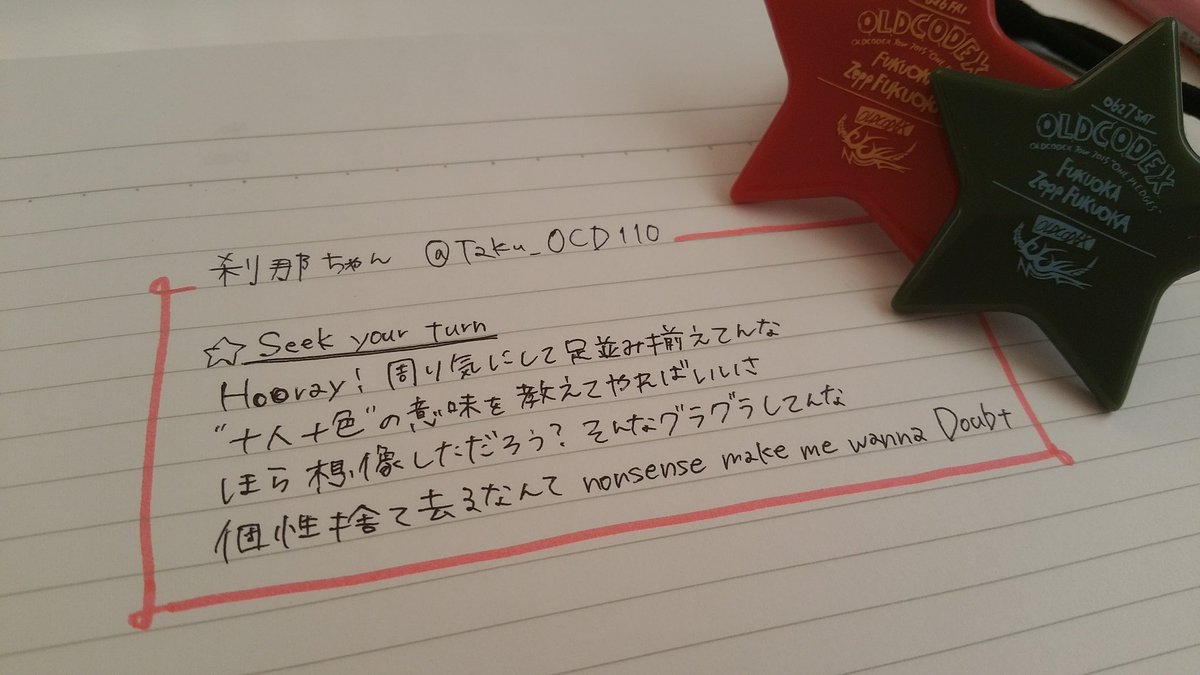 刹那ちゃん @Taku_OCD110
☆Seek your turn
Hooray! 周り気にして足並み揃えてんな
"十人十色"の意味を教えてやればいいさ
ほら想像しただろう?そんなグラグラしてんな
個性捨て去るなんて nonsense make me wanna Doubt
0626 FRI
OLDCODEX
OLDCODEX Tour 2015 "ONE PLEDGES"
FUKUOKA
Zepp FUKUOKA
OLDCODEX
0627 SAT
OLDCODEX
OLDCODEX Tour 2015 "ONE PLEDGES"
FUKUOKA
Zepp FUKUOKA
OLDCODEX